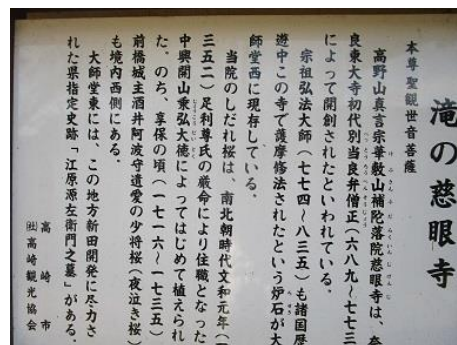 滝の慈眼寺
本尊聖観世音菩薩
高野山真言宗華敷山補陀落院慈眼寺は、奈
良東大寺初代別当良弁僧正(六八九~七七三
によって開創されたといわれている。
宗祖弘法大師(七七四~八三五)も諸国歴
遊中この寺で護摩修法されたという炉石が大
師堂西に現存している。
当院のしだれ桜は、南北朝時代文和元年(
三五二)足利尊氏の厳命により住職となった
中興開山乗弘大徳によってはじめて植えられ
た。のち、享保の頃(一七一六~一七三五)
前橋城主酒井阿波守遺愛の少将桜(夜泣き桜)
も境内西側にある。
大師堂東には、この地方新田開発に尽力さ
れた県指定史跡「江原源左衛門之墓」がある。
高崎市
㈳高崎観光協会